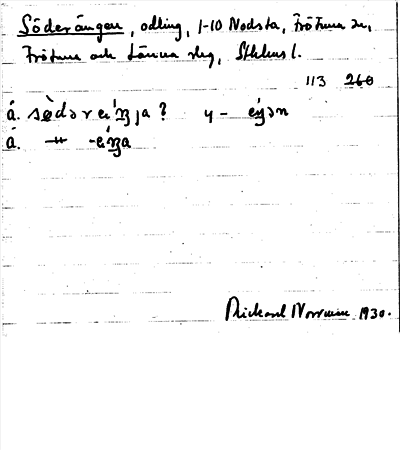 Söderängen, odling, 1-10 Nodsta, Frötuna sn,
Frötuna och Länna slg, Sthlms l.
113 260
á. sø̀dəreiŋja? y- eiŋən
á. -〃- -eiŋa
Rickard Norman 1930.